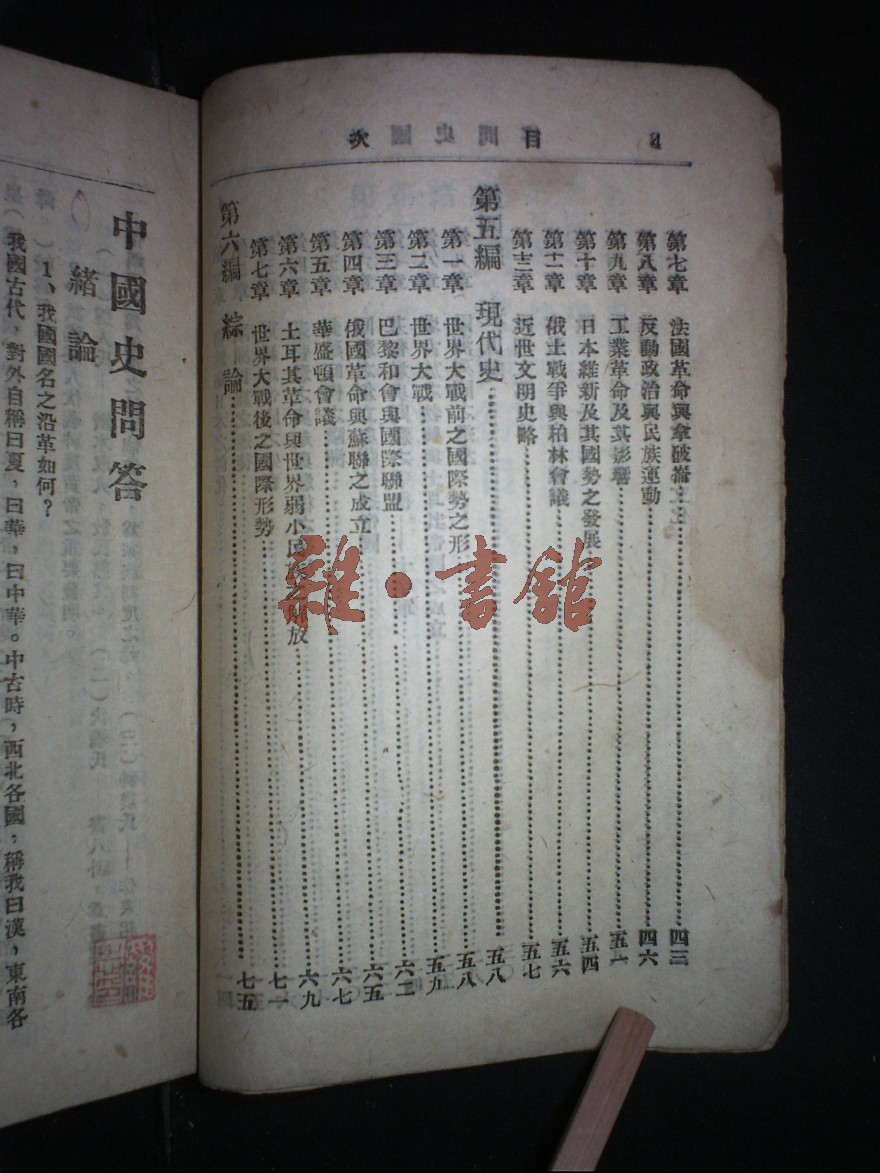 目次
第七章 法國革命與拿破崙……四三
第八章 反動政治與民族運動……四六
第九章 工業革命及其影響……五一
第十章 日本維新及其國勢之發展……五四
第十一章 俄土戰爭與柏林會議……五六
第十二章 近世文明史略……五七
第五編 現代史……五八
第一章 世界大戰前之國際勢之形……五八
第二章 世界大戰……五九
第三章 巴黎和會與國際聯盟……六二
第四章 俄國革命與蘇聯之成立……六五
第五章 華盛頓會議……六七
第六章 土耳其革命與世界弱小民族之解放……六九
第七章 世界大戰後之國際形勢……七一
第六編 綜論……七五
中國史問答
緒論
1、我國國名之沿革如何？
我國古代，對外自稱曰夏，曰華，曰中華。中古時，西北各國，稱我曰漢，東南各
雜·書館